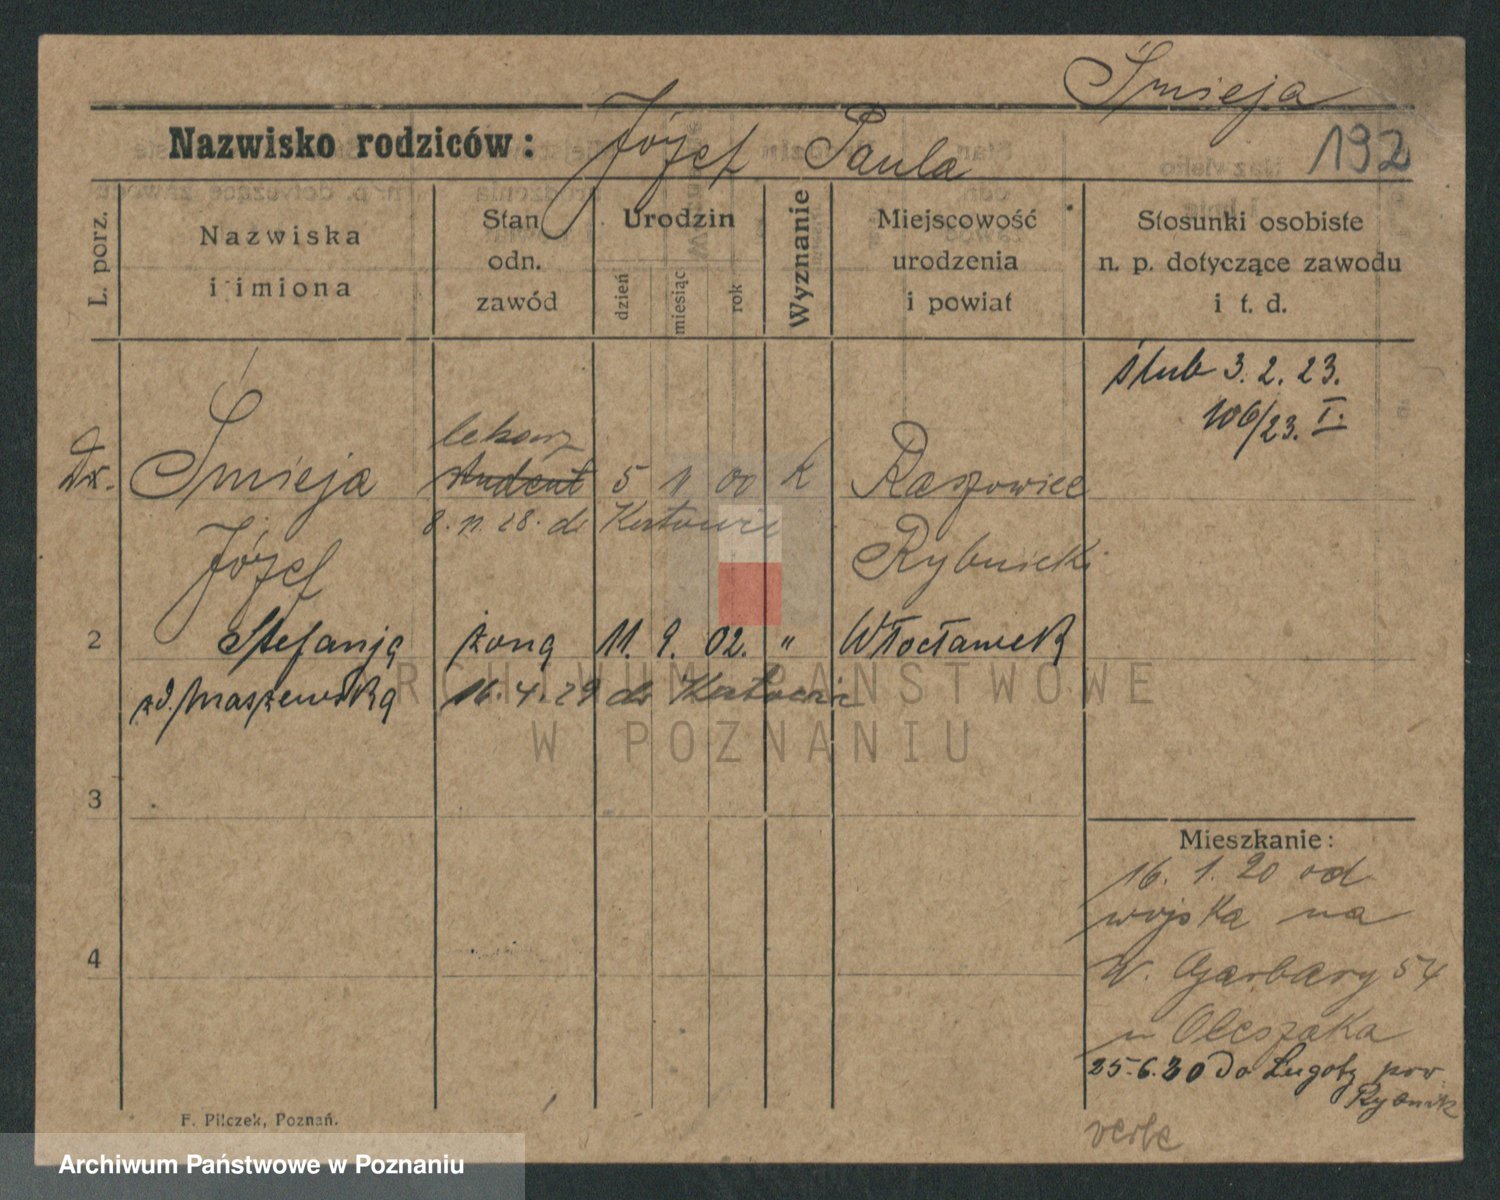 Śmieja
192
Nazwisko rodziców: Józef Paula
L. porz.
Nazwiska
i imiona
Stan
odn.
zawód
Urodzin
dzień
miesiąc
rok
Wyznanie
Miejscowość
urodzenia
i powiat
Stosunki osobiste
n. p. dotyczące zawodu
i t. d.
ślub 3. 2. 23.
106/23. I.
lekarz
Dr. Śmieja student 5 11 00 k Raszowiec
8. 11. 28. do Katowic
Józef Rybnicki
2 Stefanja żona 11. 9. 02. " Włocławek
zd. Maszewska 16. 4. 29 do Katowic
ARCHIWUM PAŃSTWOWE
W POZNANIU
3
Mieszkanie:
16. 1. 20 od
wojska na
W. Garbary 54
u Oleszaka
4
25.6.20 do Ligoty pow.
Rybnik
F. Pilczek, Poznań.
Archiwum Państwowe w Poznaniu